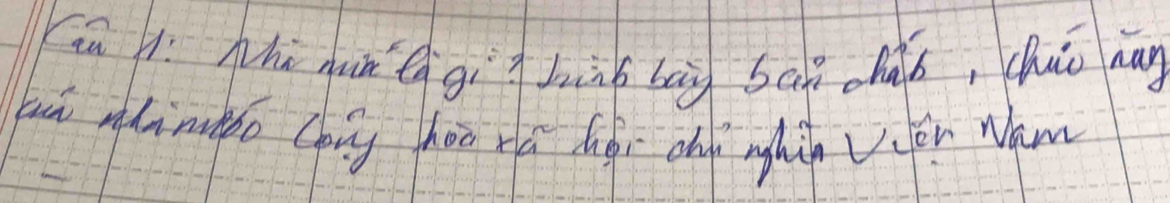 Câu 1: Nhà nước là gì? trình bày bản chất, chức năng
của nhà nước Cộng hòa xã hội chủ nghĩa Việt Nam